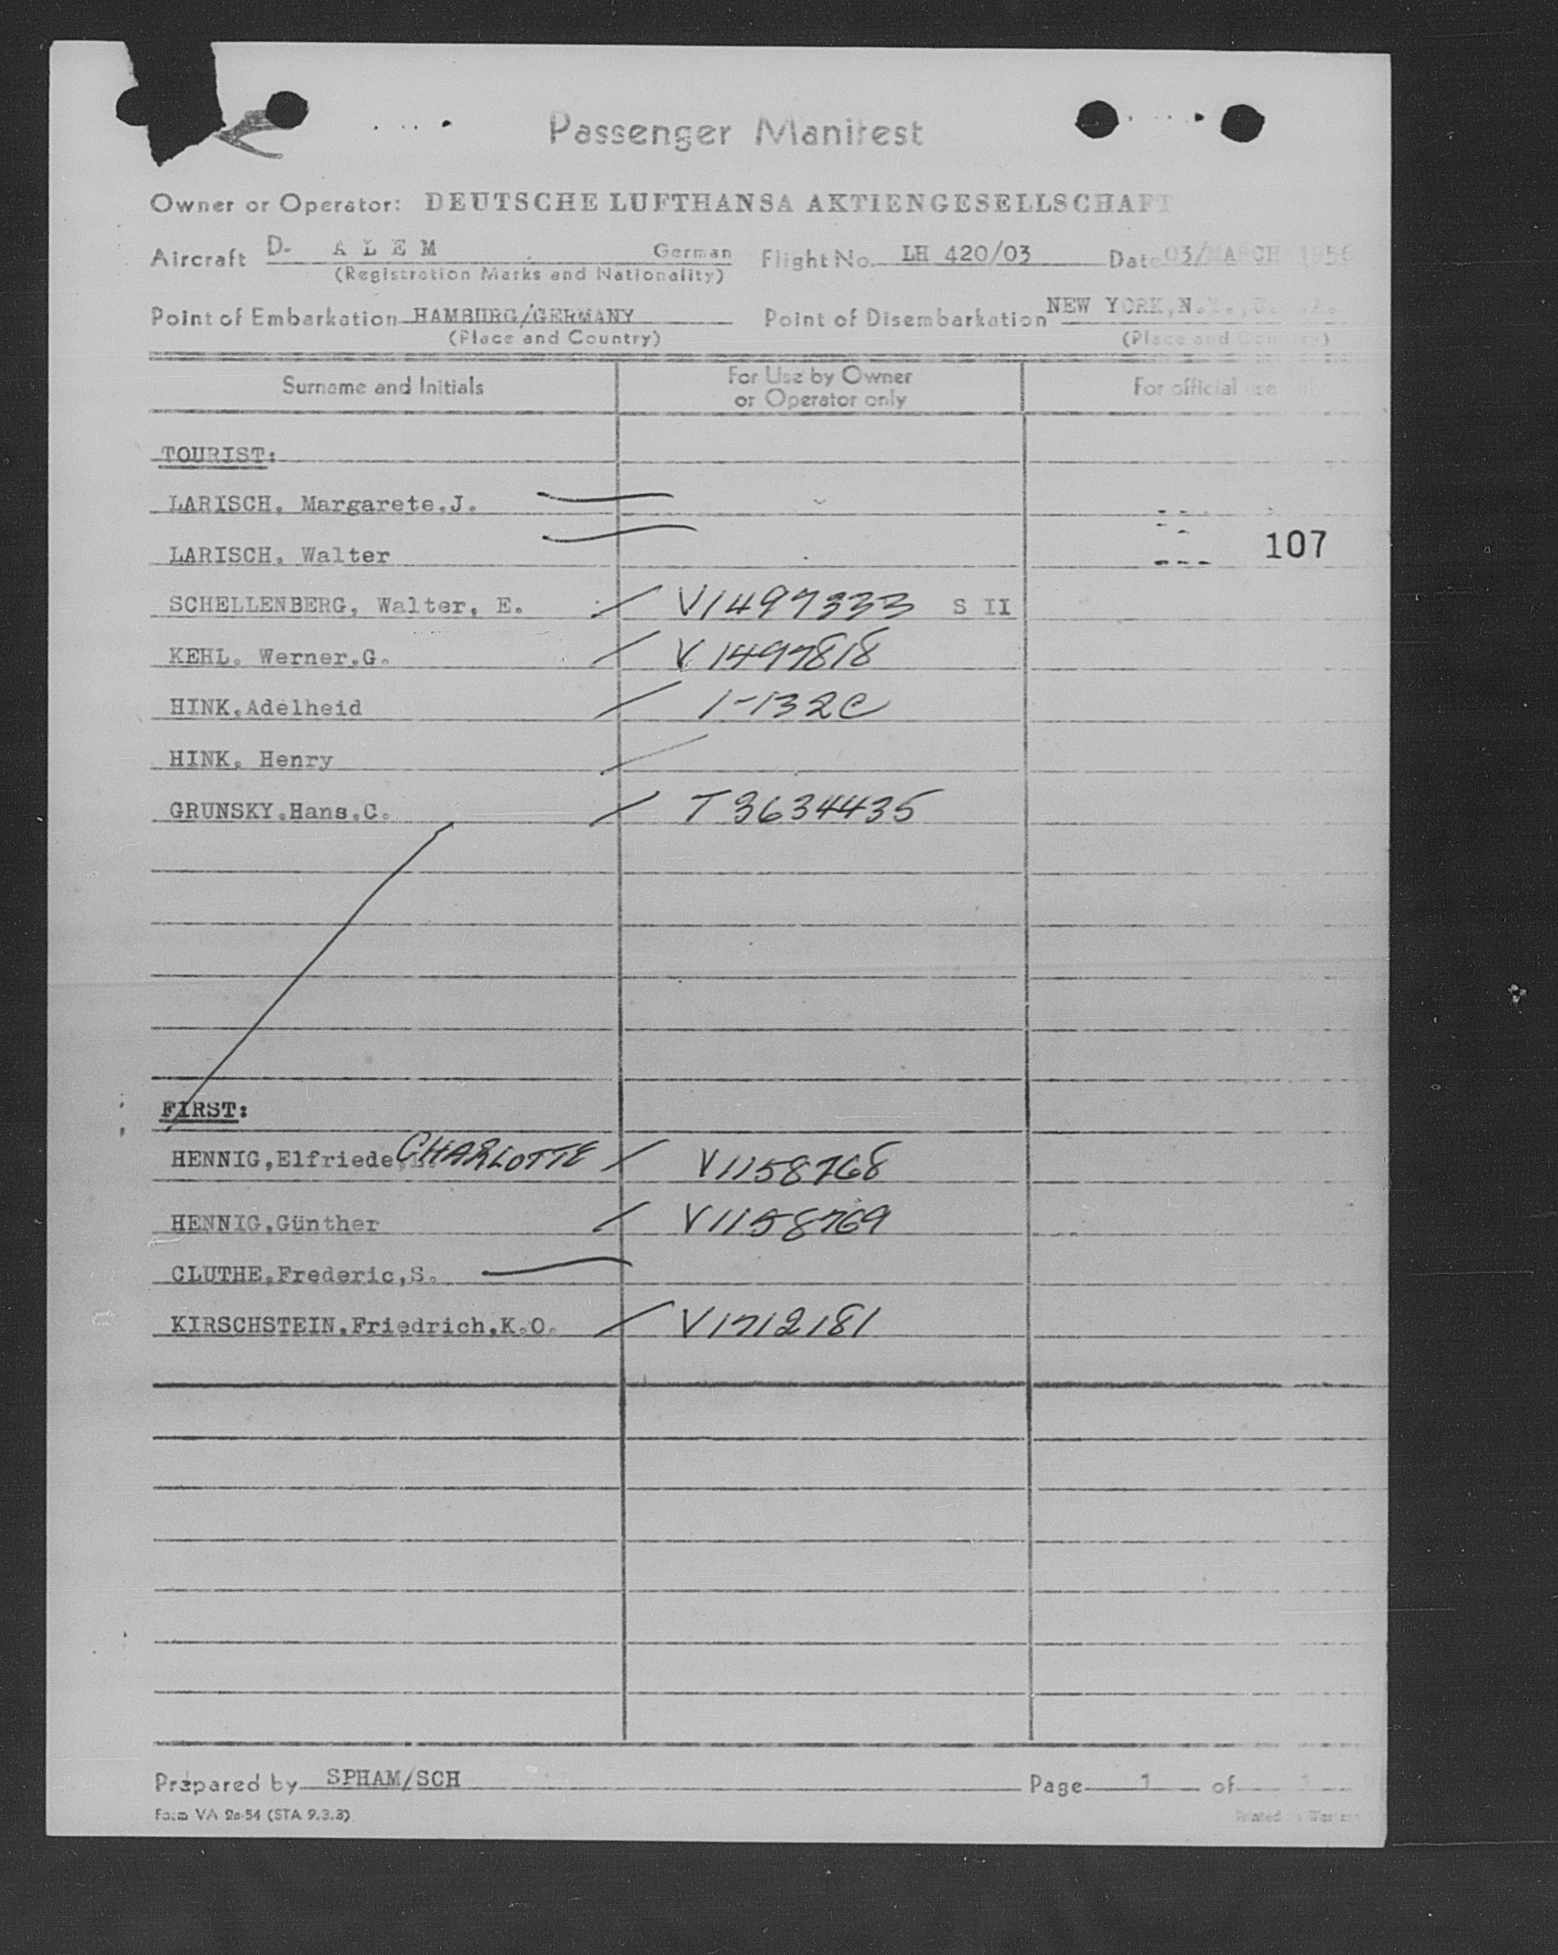 Passenger Manifest
Owner or Operator: DEUTSCHE LUFTHANSA AKTIENGESELLSCHAFT
Aircraft D- A L E M German Flight No. LH 420/03 Date 03/MARCH 1956
(Registration Marks and Nationality)
Point of Embarkation HAMBURG/GERMANY Point of Disembarkation NEW YORK, N.
(Place and Country) (Place and Country)
Surname and Initials For Use by Owner or Operator only For official use
TOURIST:
LARISCH, Margarete.J.
LARISCH, Walter 107
SCHELLENBERG, Walter, E. / V1497333 S II
KEHL. Werner.G. / V 1497818
HINK.Adelheid / 1-132C
HINK. Henry /
GRUNSKY.Hans.C. / T3634435
FIRST:
HENNIG,Elfriede, CHARLOTTE / V1158768
HENNIG.Günther / V1158769
CLUTHE,Frederic,S.
KIRSCHSTEIN.Friedrich.K.O. / V1712181
Prepared by SPHAM/SCH Page 1 of
Form VA 2a-54 (STA 9.3.3) Printed